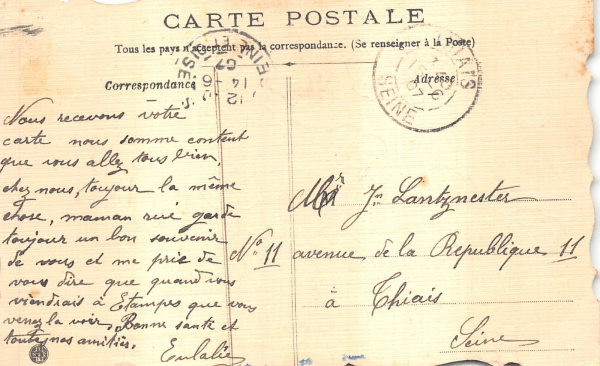 CARTE POSTALE
Tous les pays n'acceptent pas la correspondance. (Se renseigner à la Poste)
Correspondance
Adresse
THIAIS
SEINE
Nous recevons vôtre
carte nous somme content
que vous allez tous bien,
chez nous, toujour la même
chose, maman
garde
toujour un bon souvenir
de vous et me prie de
vous dire que quand vous
viendrais à Etampes que vous
venez la voir, Bonne sante et
toutes nos amitiés.
Eulalie
Mr Jn Lantznester
No 11 avenue de la Republique 11
à Thiais
Seine